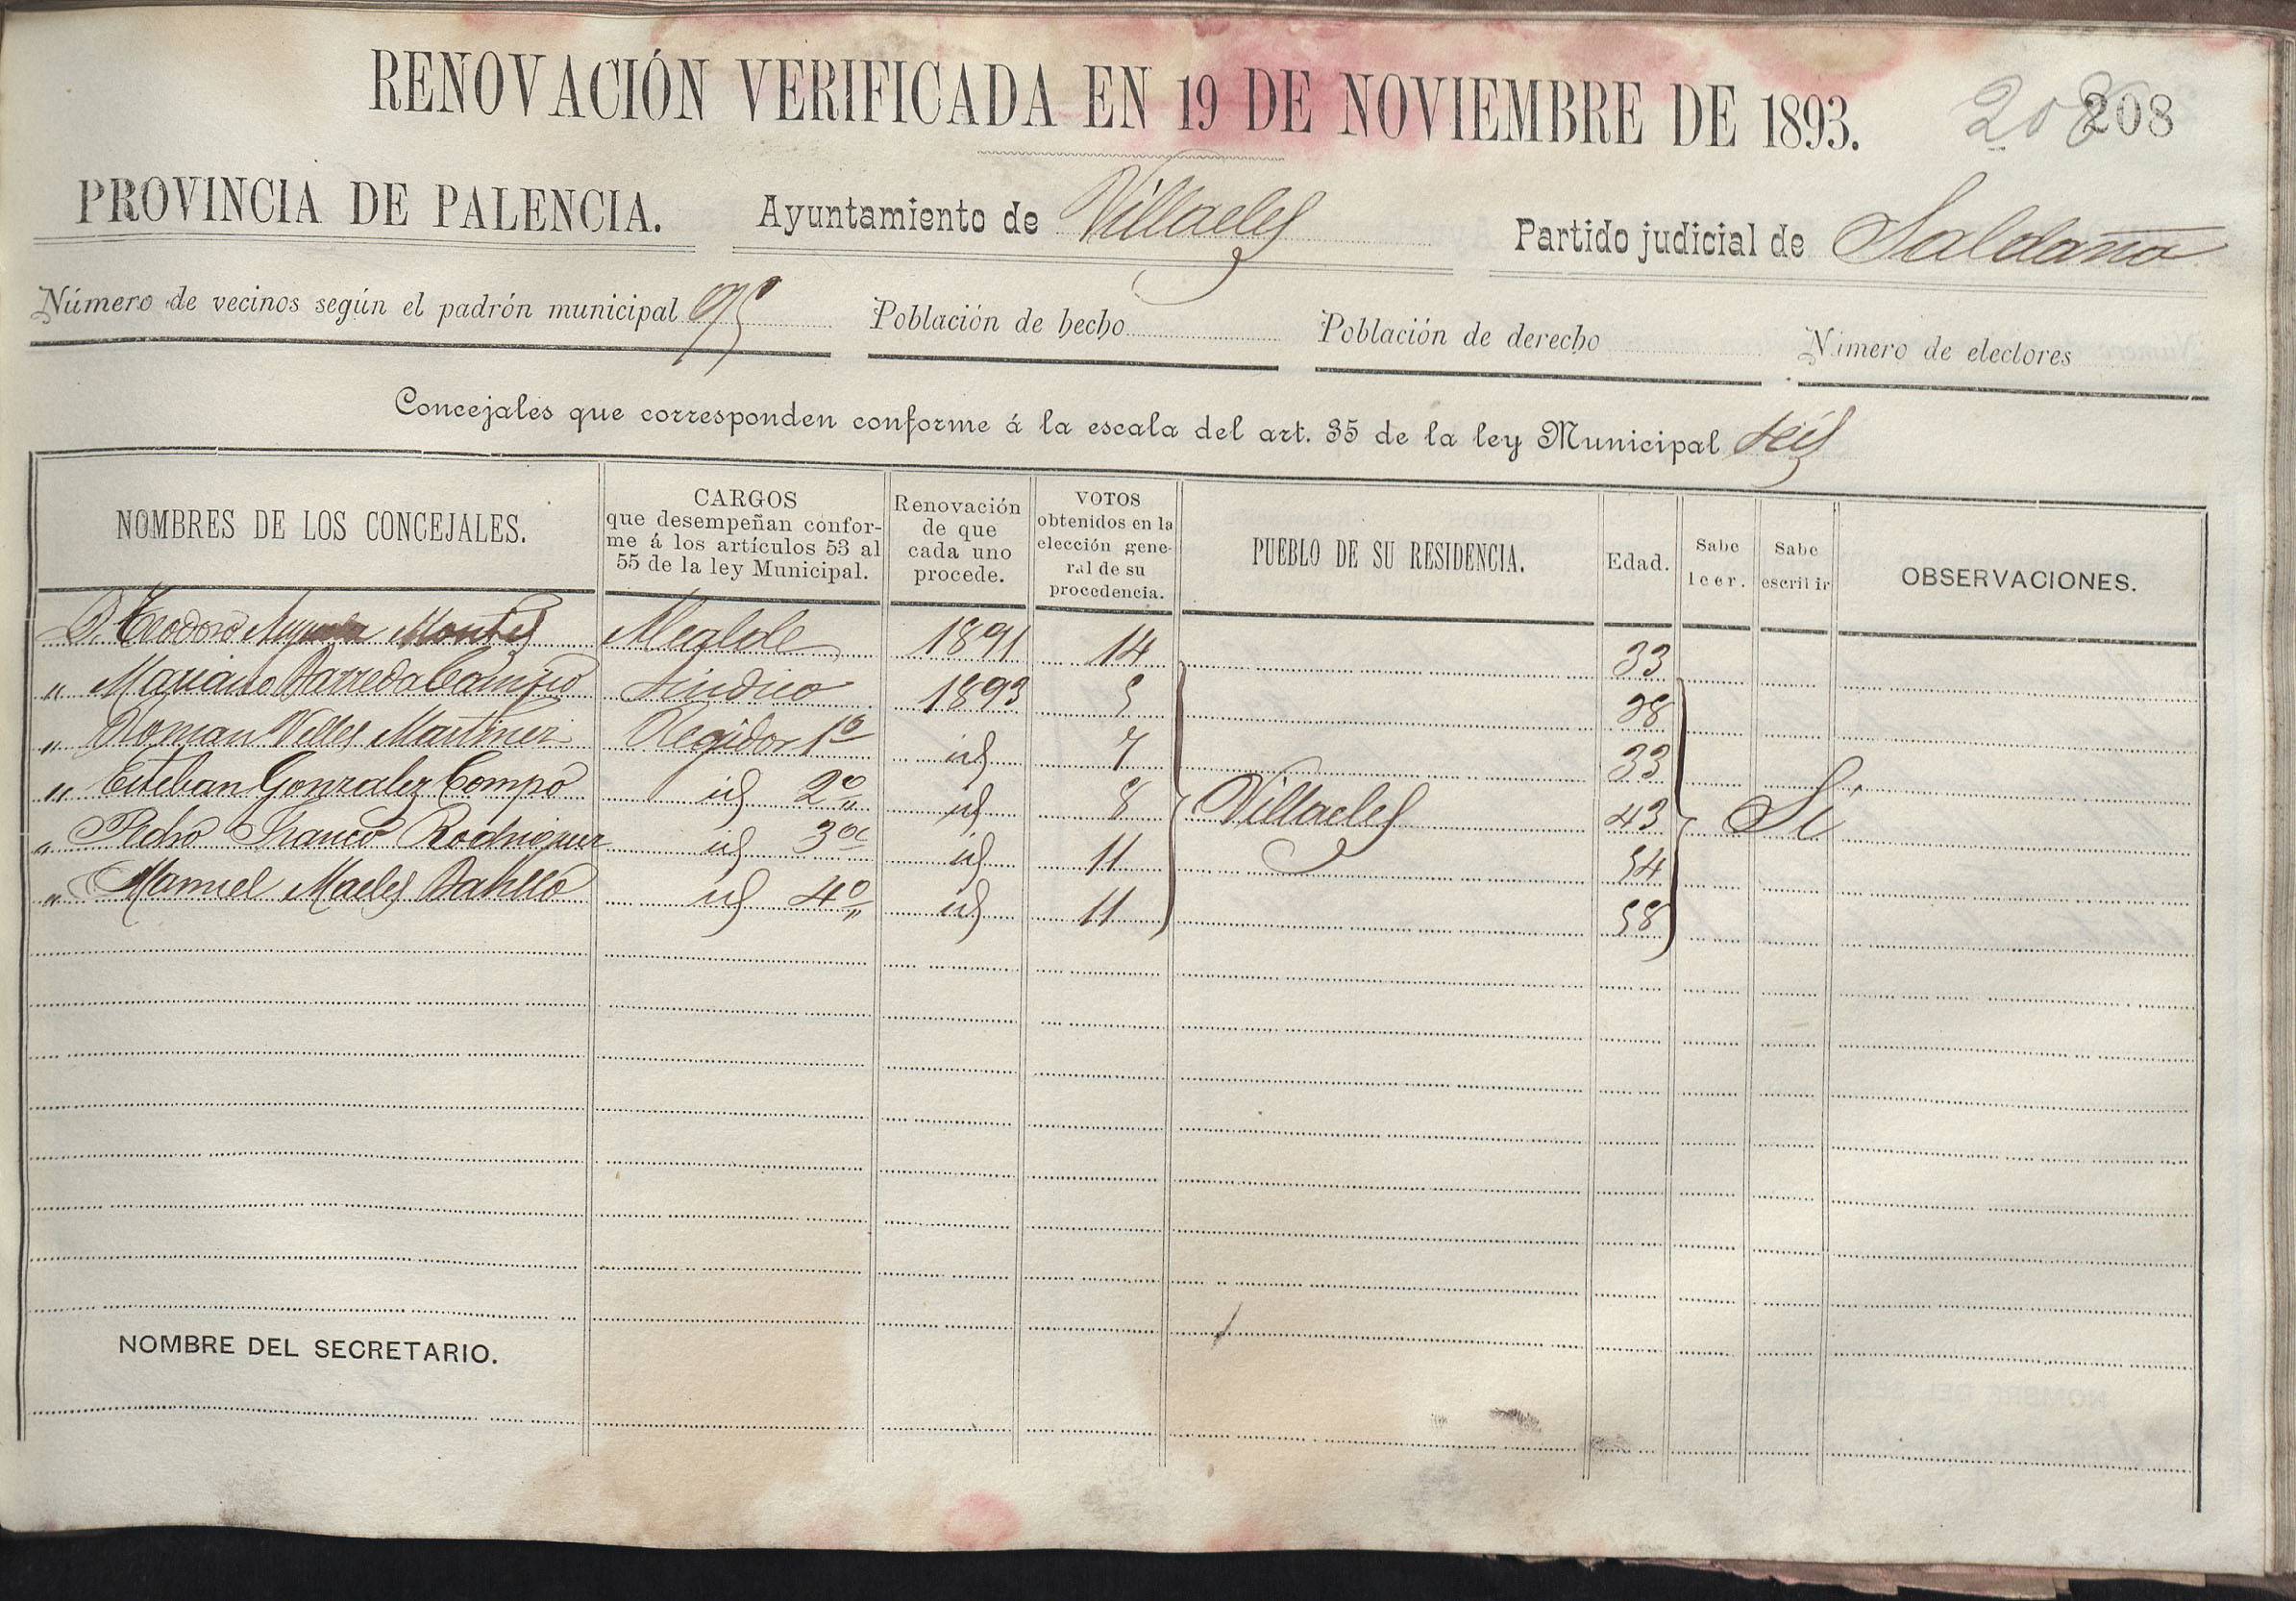 RENOVACIÓN VERIFICADA EN 19 DE NOVIEMBRE DE 1893.
208 208
PROVINCIA DE PALENCIA. Ayuntamiento de Villaeles Partido judicial de Saldaña
Número de vecinos según el padrón municipal 95 Población de hecho Población de derecho Número de electores
Concejales que corresponden conforme á la escala del art. 35 de la ley Municipal seis
NOMBRES DE LOS CONCEJALES.
CARGOS
que desempeñan confor-
me á los artículos 53 al
55 de la ley Municipal.
Renovación
de que
cada uno
procede.
VOTOS
obtenidos en la
elección gene-
ral de su
procedencia.
PUEBLO DE SU RESIDENCIA.
Edad.
Sabe
leer.
Sabe
escribir
OBSERVACIONES.
D. Teodoro Montes Alcalde 1891 14 33
" Mariano Barreda Campo Sindico 1893 5 38
" Roman Velles Martinez Regidor 1º id 7 33
" Esteban Gonzalez Campo id 2º id 8 Villaeles 43 Si
" Pedro Franco Rodriguez id 3º id 11 54
" Manuel Maeles id 4º id 11 58
NOMBRE DEL SECRETARIO.